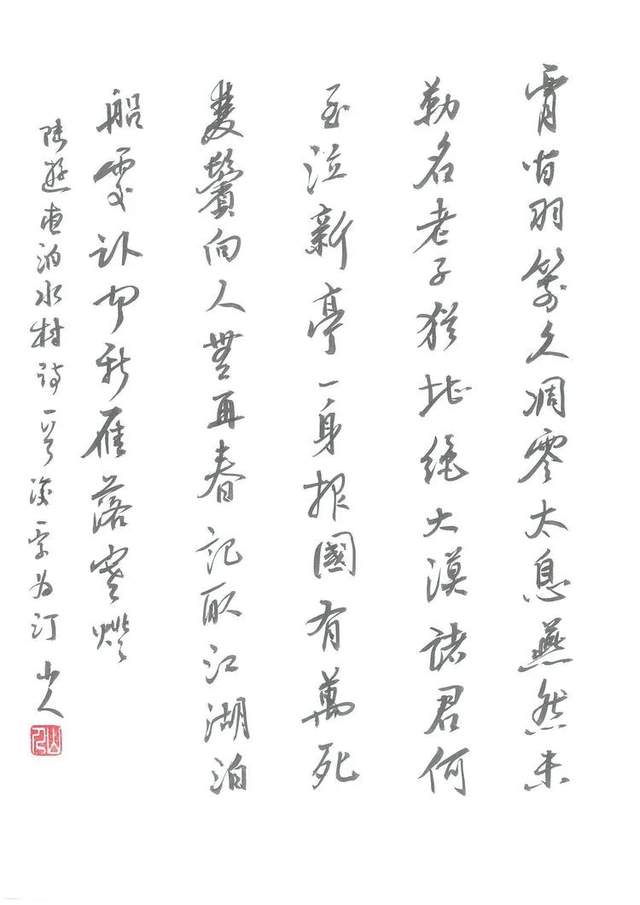 腰間羽箭久凋零太息燕然未
勒名老子猶堪絕大漠諸君何
至泣新亭一身報國有萬死
雙鬢向人無再春記取江湖泊
船處臥聞新雁落寒燈
陸遊夜泊水村詩一首後一字為汀山人